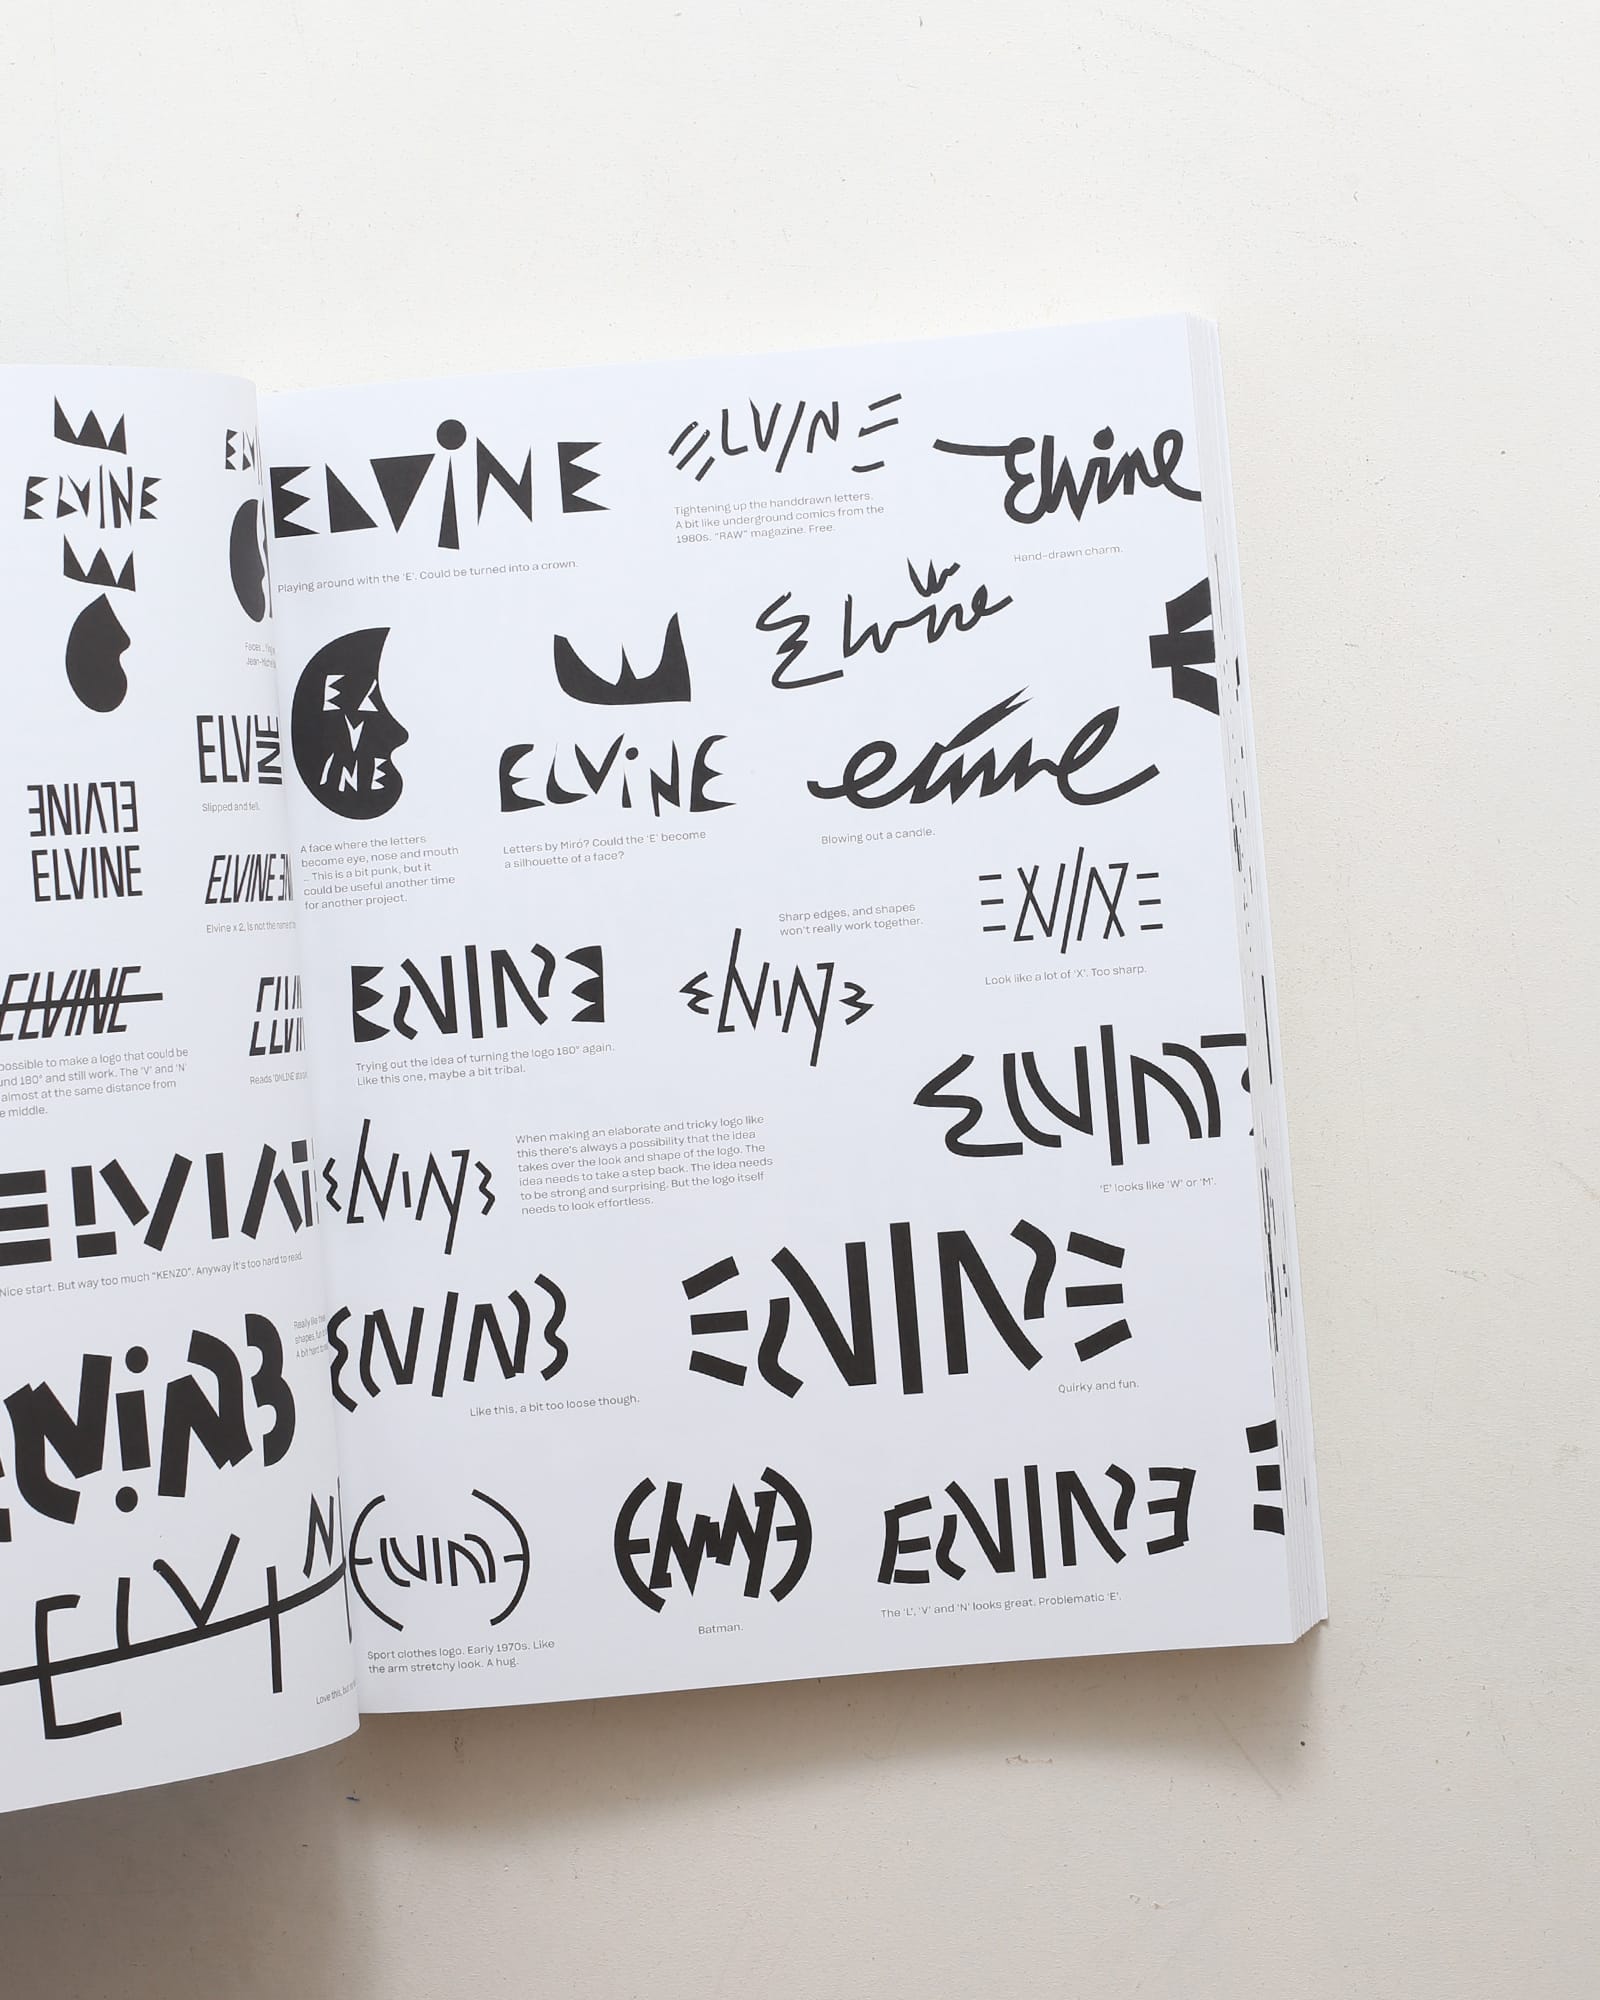 ELVINE
ELVINE
ELVINE
ELVINE
Slipped and fell.
ELVINE
Elvine x 2, Is not the name
ELVINE
possible to make a logo that could be
und 180° and still work. The 'V' and 'N'
almost at the same distance from
e middle.
Reads
Nice start. But way too much "KENZO". Anyway it's too hard to read.
Really like the
shapes,
A bit hard to
ELVIN
Love this, but
ELVINE
Playing around with the 'E'. Could be turned into a crown.
ELVINE
Tightening up the handdrawn letters.
A bit like underground comics from the
1980s. "RAW" magazine. Free.
Elvine
Hand-drawn charm.
ELVINE
A face where the letters
become eye, nose and mouth
... This is a bit punk, but it
could be useful another time
for another project.
ELVINE
Letters by Miró? Could the 'E' become
a silhouette of a face?
Elvine
elvine
Blowing out a candle.
ELVINE
Trying out the idea of turning the logo 180° again.
Like this one, maybe a bit tribal.
Sharp edges, and shapes
won't really work together.
ELVINE
ELVINE
Look like a lot of 'X'. Too sharp.
ELVINE
When making an elaborate and tricky logo like
this there's always a possibility that the idea
takes over the look and shape of the logo. The
idea needs to take a step back. The idea needs
to be strong and surprising. But the logo itself
needs to look effortless.
ELVINE
'E' looks like 'W' or 'M'.
ELVINE
Like this, a bit too loose though.
ELVINE
Quirky and fun.
ELVINE
Sport clothes logo. Early 1970s. Like
the arm stretchy look. A hug.
ELVINE
Batman.
ELVINE
The 'L', 'V' and 'N' looks great. Problematic 'E'.